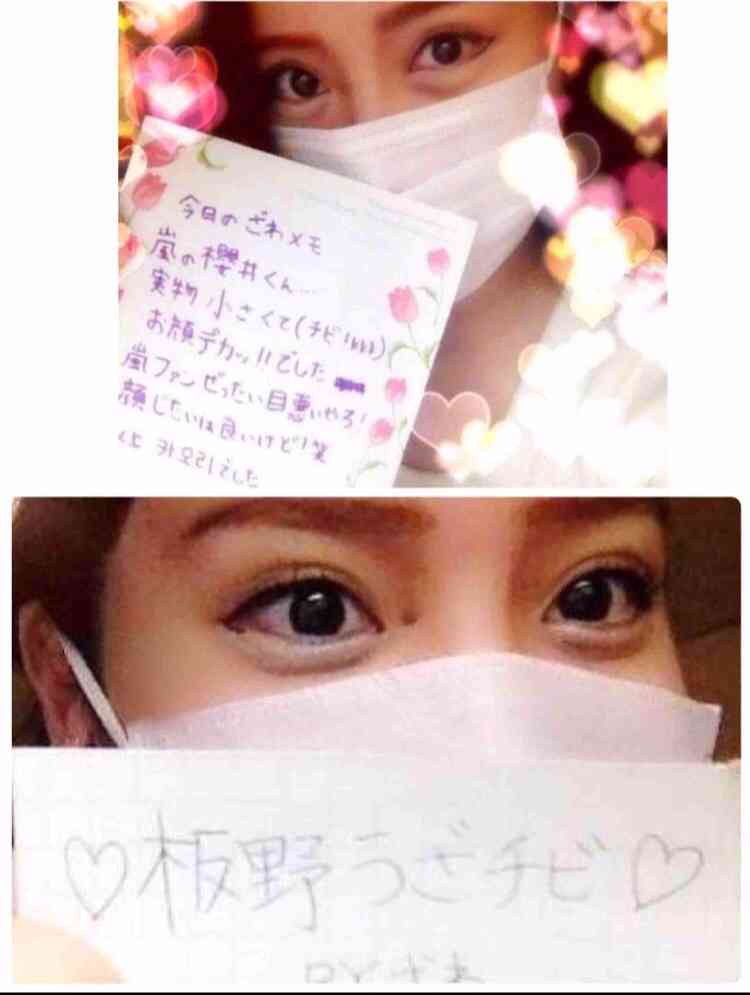 今日のざわメモ
嵐の櫻井くん…
実物小さくて(チビ!
お顔デカッ!!でした
嵐ファンぜったい目悪いやろ!
顔じたいは良いけど!笑
でした
♡板野うざチビ♡